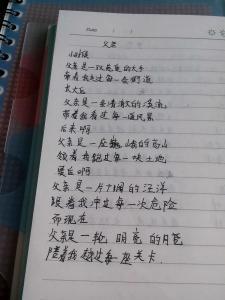 父亲
小时候
父亲是一双宽宽的大手
带着我走过每一条街道
长大后
父亲是一条清澈的溪流
带着我看过每一道风景
后来啊
父亲是一座巍峨的高山
领着我跑过每一块土地
最后啊
父亲是一片广阔的汪洋
跟着我冲过每一次危险
而现在
父亲是一轮明亮的月亮
陪着我越过每一座关卡